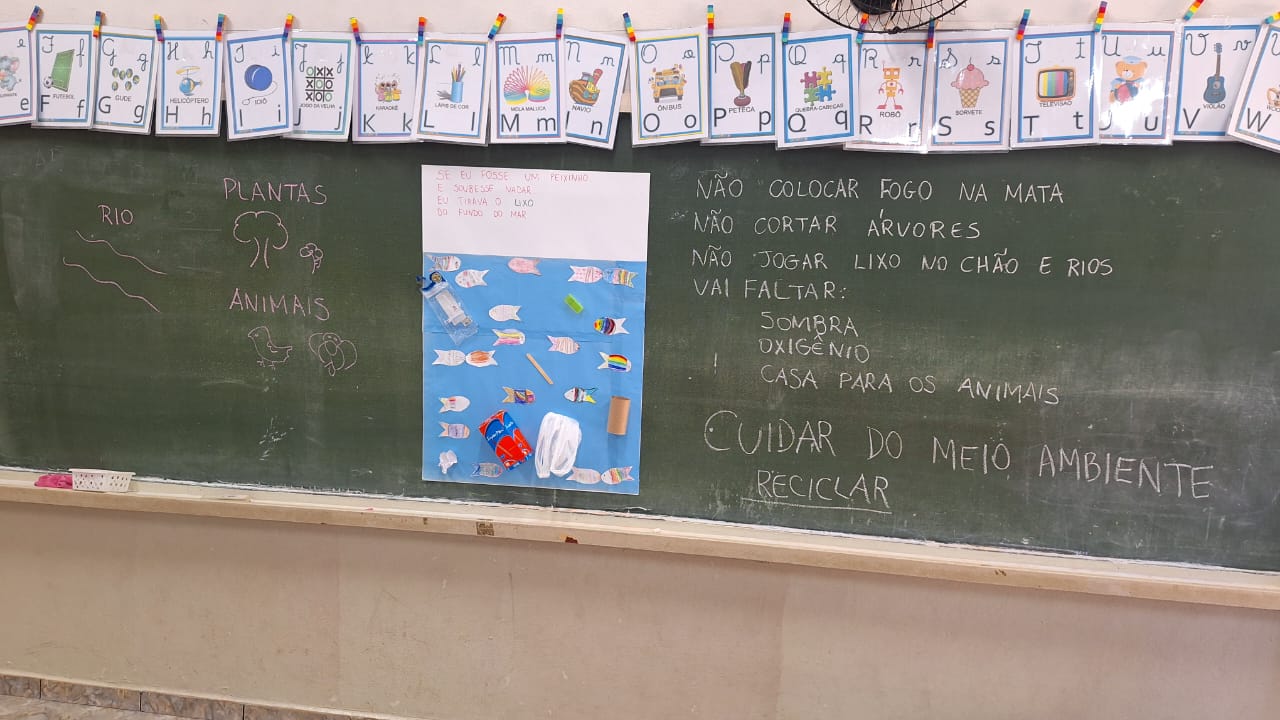 e
F f f FUTEBOL F f
G g GUDE G g
H h HELICÓPTERO H h
I i IOIÔ I i
J j JOGO DA VELHA J j
K k KARAOKÊ K k
L l LÁPIS DE COR L l
M m MOLA MALUCA M m
N n NAVIO N n
O o ÔNIBUS O o
P p PETECA P p
Q q QUEBRA-CABEÇAS Q q
R r ROBÔ R r
S s SORVETE S s
T t TELEVISÃO T t
U u U u
V v VIOLÃO V v
W W
RIO
PLANTAS
ANIMAIS
SE EU FOSSE UM PEIXINHO
E SOUBESSE NADAR
EU TIRAVA O LIXO
DO FUNDO DO MAR
NÃO COLOCAR FOGO NA MATA
NÃO CORTAR ÁRVORES
NÃO JOGAR LIXO NO CHÃO E RIOS
VAI FALTAR:
SOMBRA
OXIGÊNIO
CASA PARA OS ANIMAIS
CUIDAR DO MEIO AMBIENTE
RECICLAR